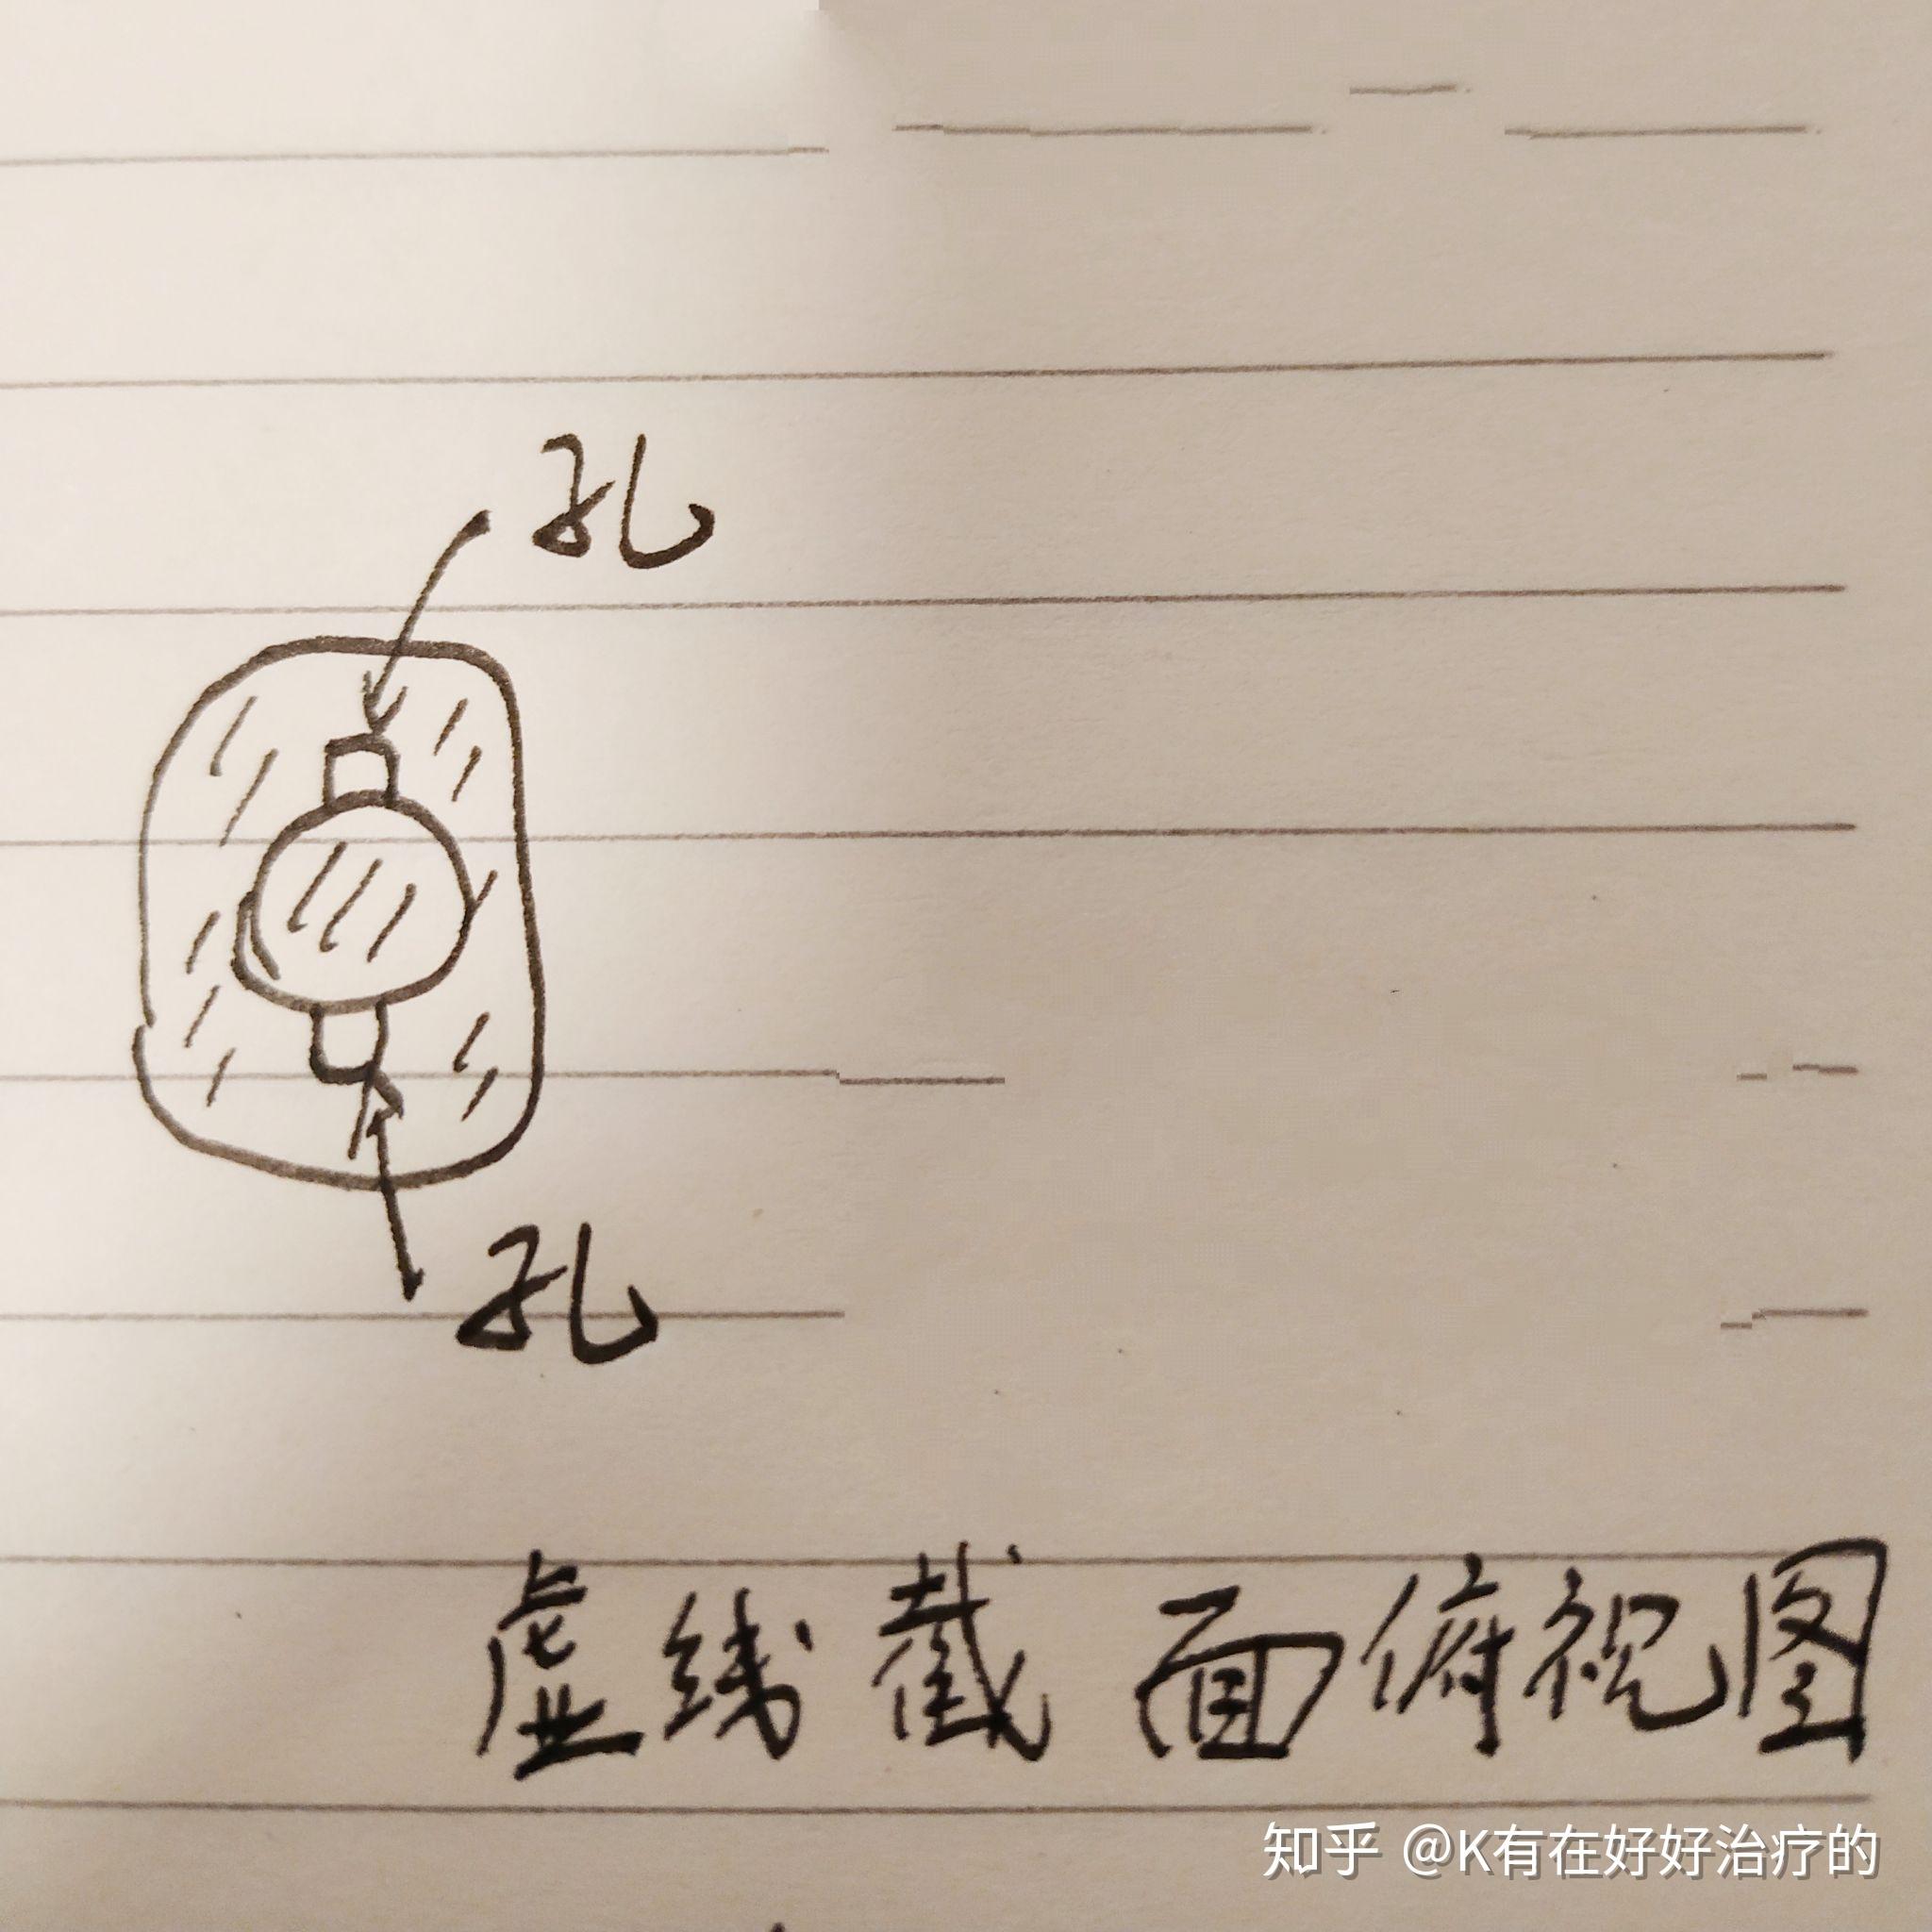 孔
孔
虚线截面俯视图
知乎 @K有在好好治疗的